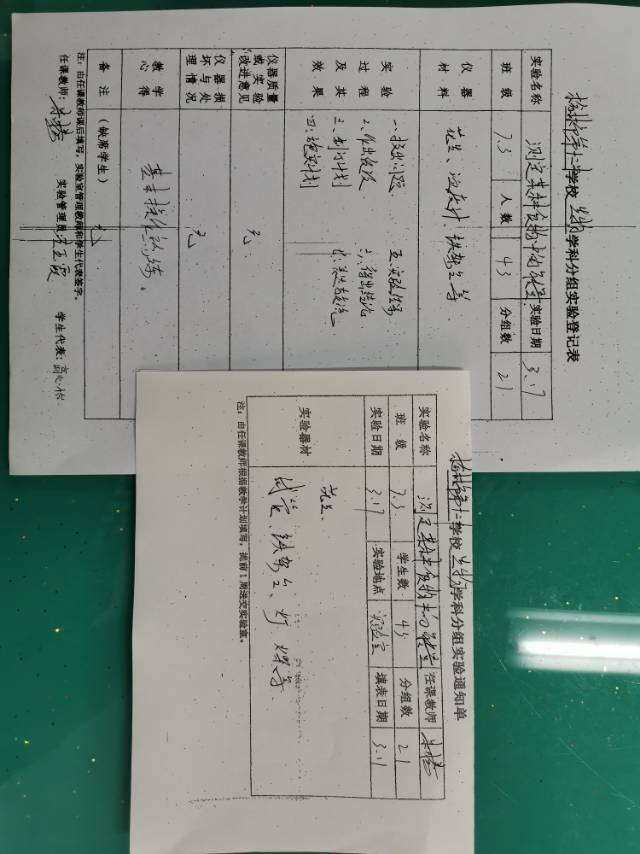 学校生物学科分组实验登记表
实验名称 测定某种食物中的能量 实验日期 3.7
班级 7.3 人数 43 分组数 21
仪器材料 花生、温度计、铁架台等
实验过程及其效果
一、提出问题 五、实验
2、作出假设 六、得出结论
三、制订计划
四、实施计划
仪器质量或实验改进意见 无
仪器损坏与处理情况 无
教学心得 基本操作训练。
备注 (缺席学生) 无
注:由任课教师课后填写,实验室管理教师和学生代表签字。
任课教师: 实验管理员 学生代表:
学校生物学科分组实验通知单
实验名称 测定某种食物中的能量 任课教师
班级 7.3 学生数 43 分组数 21
实验日期 3.17 实验地点 实验室 填表日期 3.1
实验器材 花生、
试管、铁架台、灯 等
注:由任课教师根据教学计划填写,提前1周送交实验室。